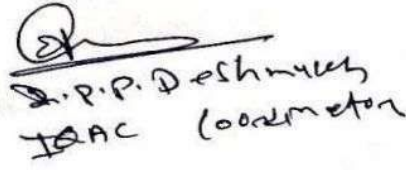 Dr. P. P. Deshmukh
IQAC Coordinator